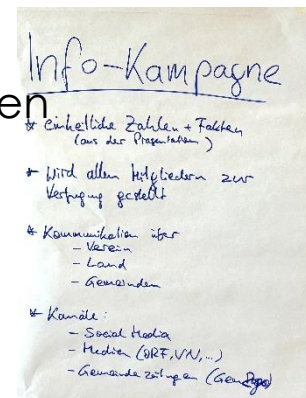 Info-Kampagne
en
* Einheitliche Zahlen + Fakten
(aus der Präsentation)
* Wird allen Mitgliedern zur
Verfügung gestellt
* Kommunikation über
- Verein
- Land
- Gemeinden
* Kanäle:
- Social Media
- Medien (ORF, VN, ...)
- Gemeindezeitungen